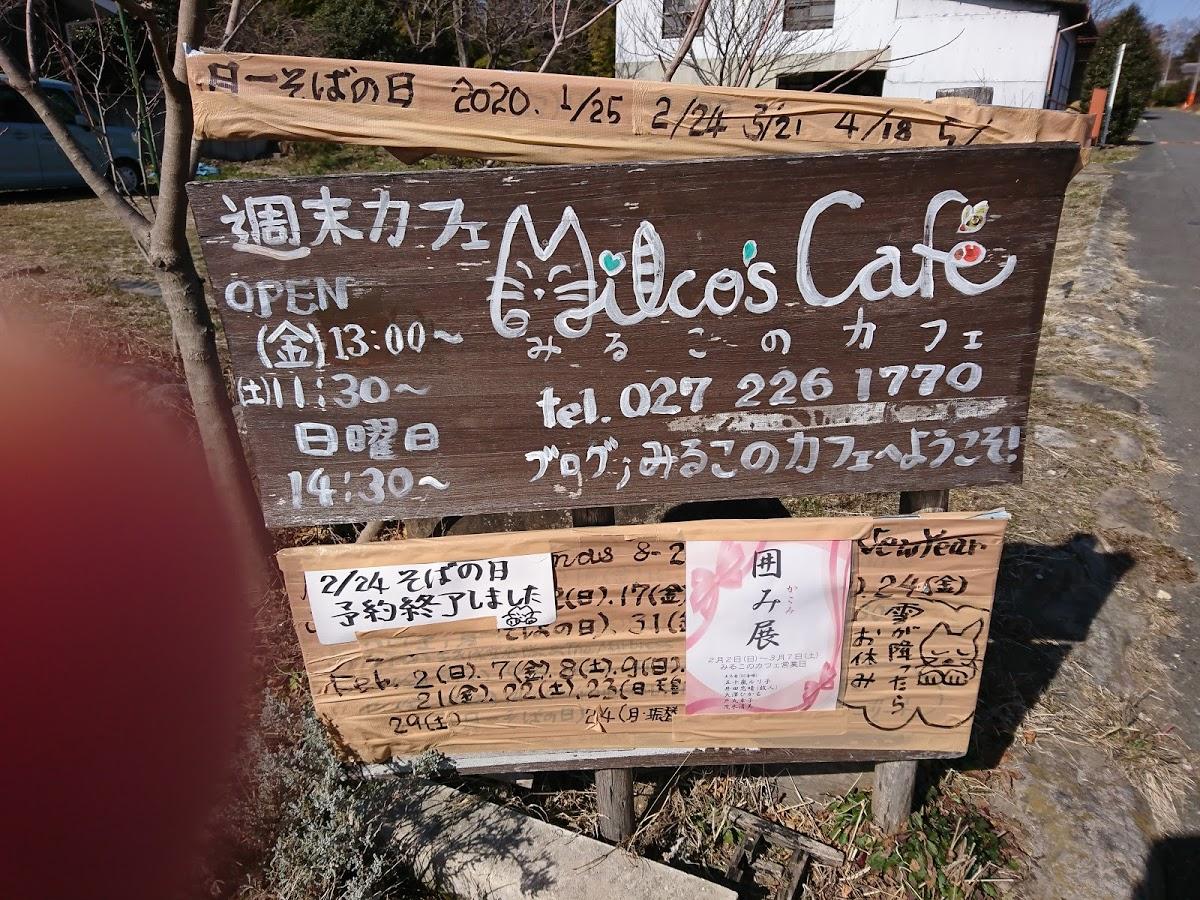 日一そばの日 2020. 1/25 2/24 3/21 4/18 5/
週末カフェ Milco's Cafe
みるこのカフェ
OPEN
(金)13:00~
(土)11:30~
日曜日
14:30~
tel. 027 226 1770
ブログ;みるこのカフェへようこそ!
2/24 そばの日
予約終了しました
mas 8-2
(日).17(金)
そばの日). 31(金
Feb. 2(日). 7(金). 8(土). 9(日).
21(金). 22(土). 23(日
29(土)
24(月・振替
囲み展
かこみ
2月2日(日)~3月7日(土)
みるこのカフェ営業日
New Year
). 24(金)
雪が降ったら
お休み